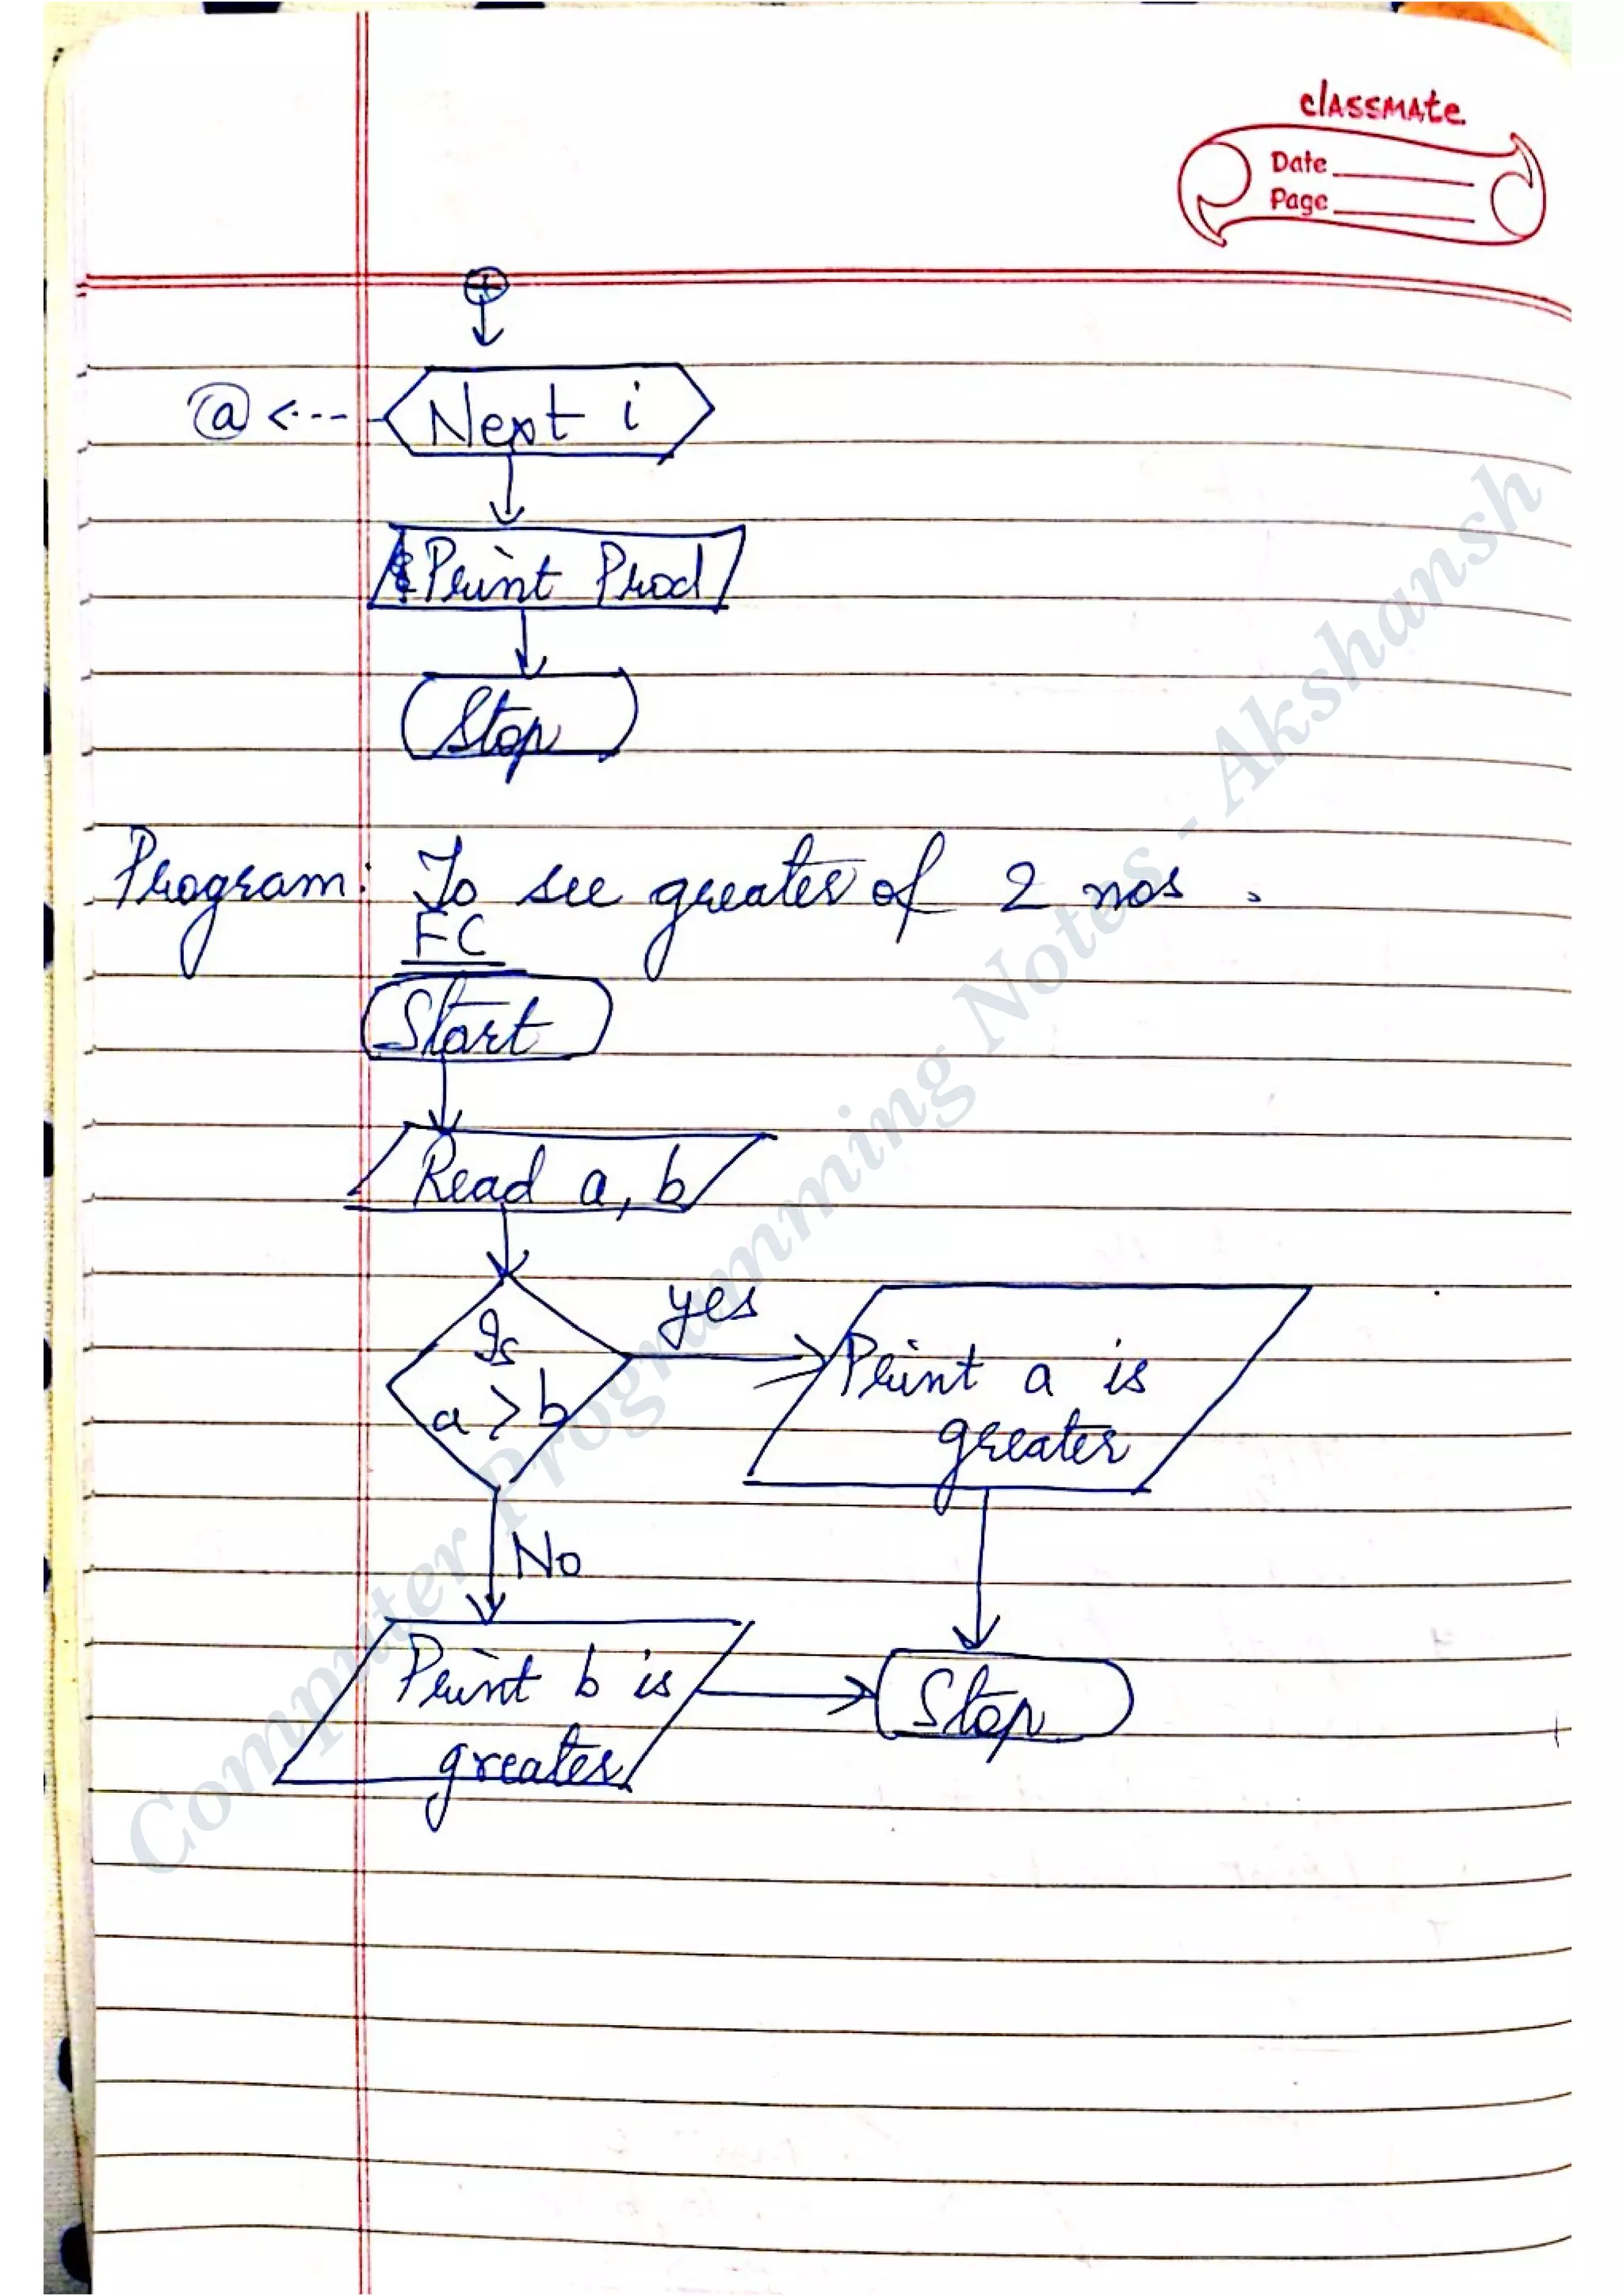 classmate
Date
Page
@ Next i
Print Prod
Stop
Program: To see greater of 2 nos.
FC
Start
Read a, b
Is
a > b
yes
Print a is
greater
No
Print b is
greater
Stop
Computer Programming Notes - Akshansh